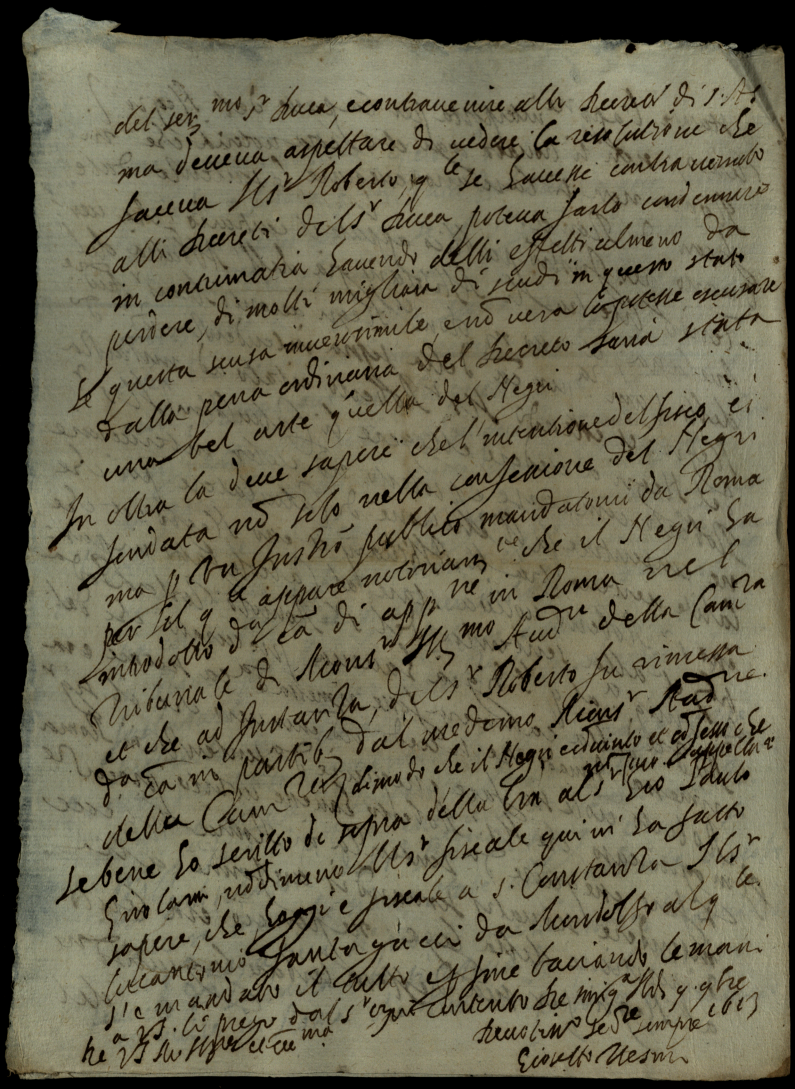 del ser.mo s.r Duca, e contravenire alli Decreti di S. A.
ma deveva aspettare di vedere la resolutione che
faceva il s.r Roberto, q.le se havesse contravenuto
alli Decreti del s.r Duca poteva farlo condennare
in contumatia havendo delli effetti almeno da
perdere, di molti migliara di scudi in questo stato
Se questa scusa inverisimile, e nō vera la potesse escusare
dalla pena ordinaria del Decreto saria stata
una bel arte quella del Negri
In oltra la deve sapere che l'intentione del fisco è
fondata nō solo nella confessione del Negri
ma p un Instrō publico mandatomi da Roma
per il q.e appare notoriam.te che il Negri ha
introdotto da cā di app.ne in Roma nel
Tribunale di Mons.r Ill.mo Aud.re della Cam.ra
et che ad Instanza del s.r Roberto fu rimessa
da cā in partib. dal medemo Mons.r Aud.re
della Cam.ra dimodo che il Negri è convinto et confesso che
Sebene ho scritto di sopra della lra al s.r Gio Paulo
Girolami, nōdimeno il s.r fiscale quivi ha fatto
sapere, che hoggi è fiscale a s. Constanza il s.r
Lucantonio Santagucci da Mondolfo al q.le
s'è mandato il tutto et fine baciando le mani
Gioseffo